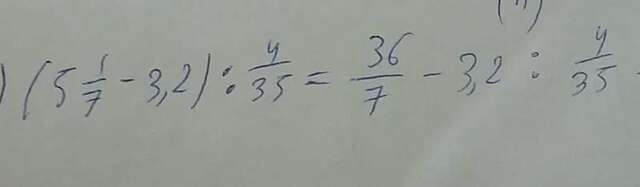 ) (5 1/7 - 3,2) : 4/35 = 36/7 - 3,2 : 4/35